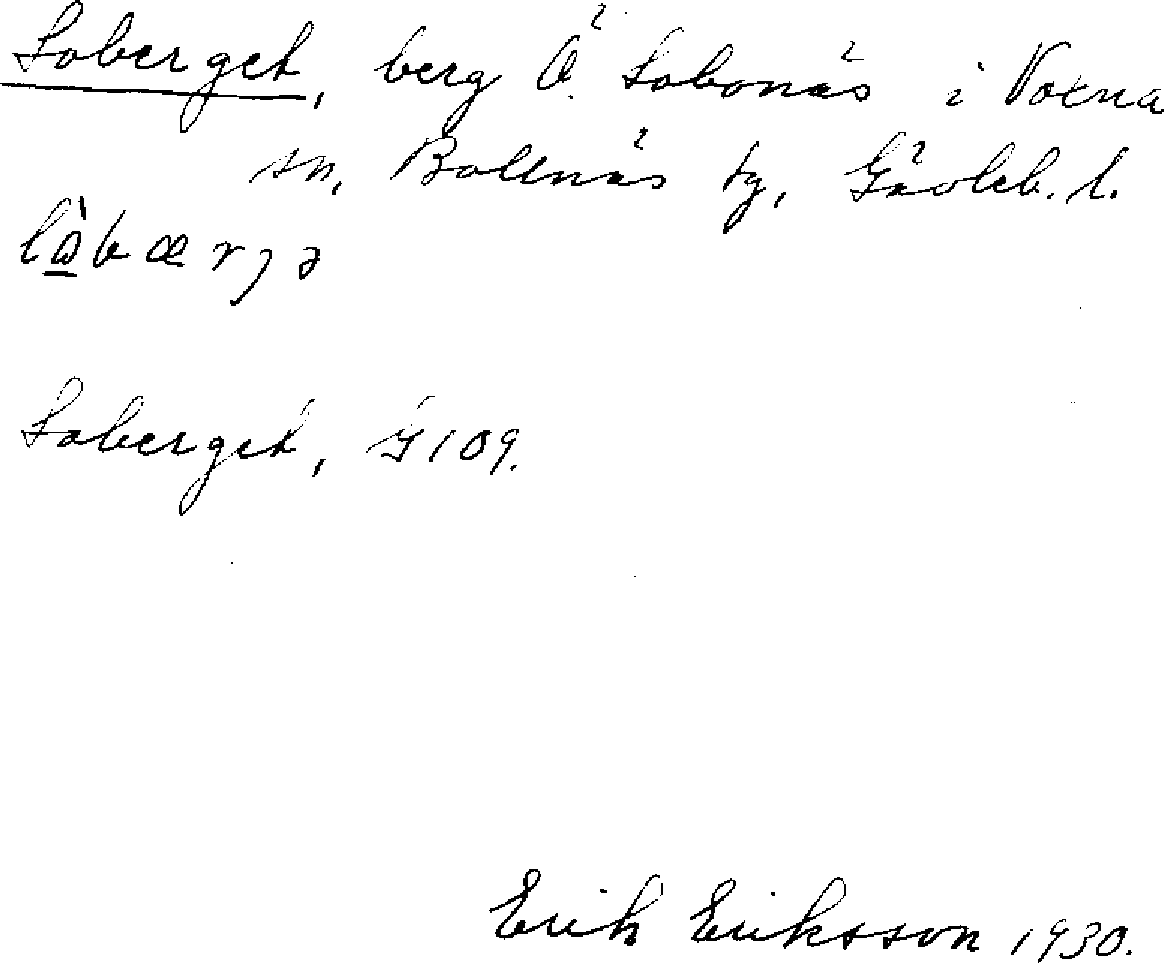 Loberget, berg Ö. Lobonäs i Voxna
sn, Bollnäs tg, Gävleb. l.
lòbærjə
Loberget, G 109.
Erik Eriksson 1930.